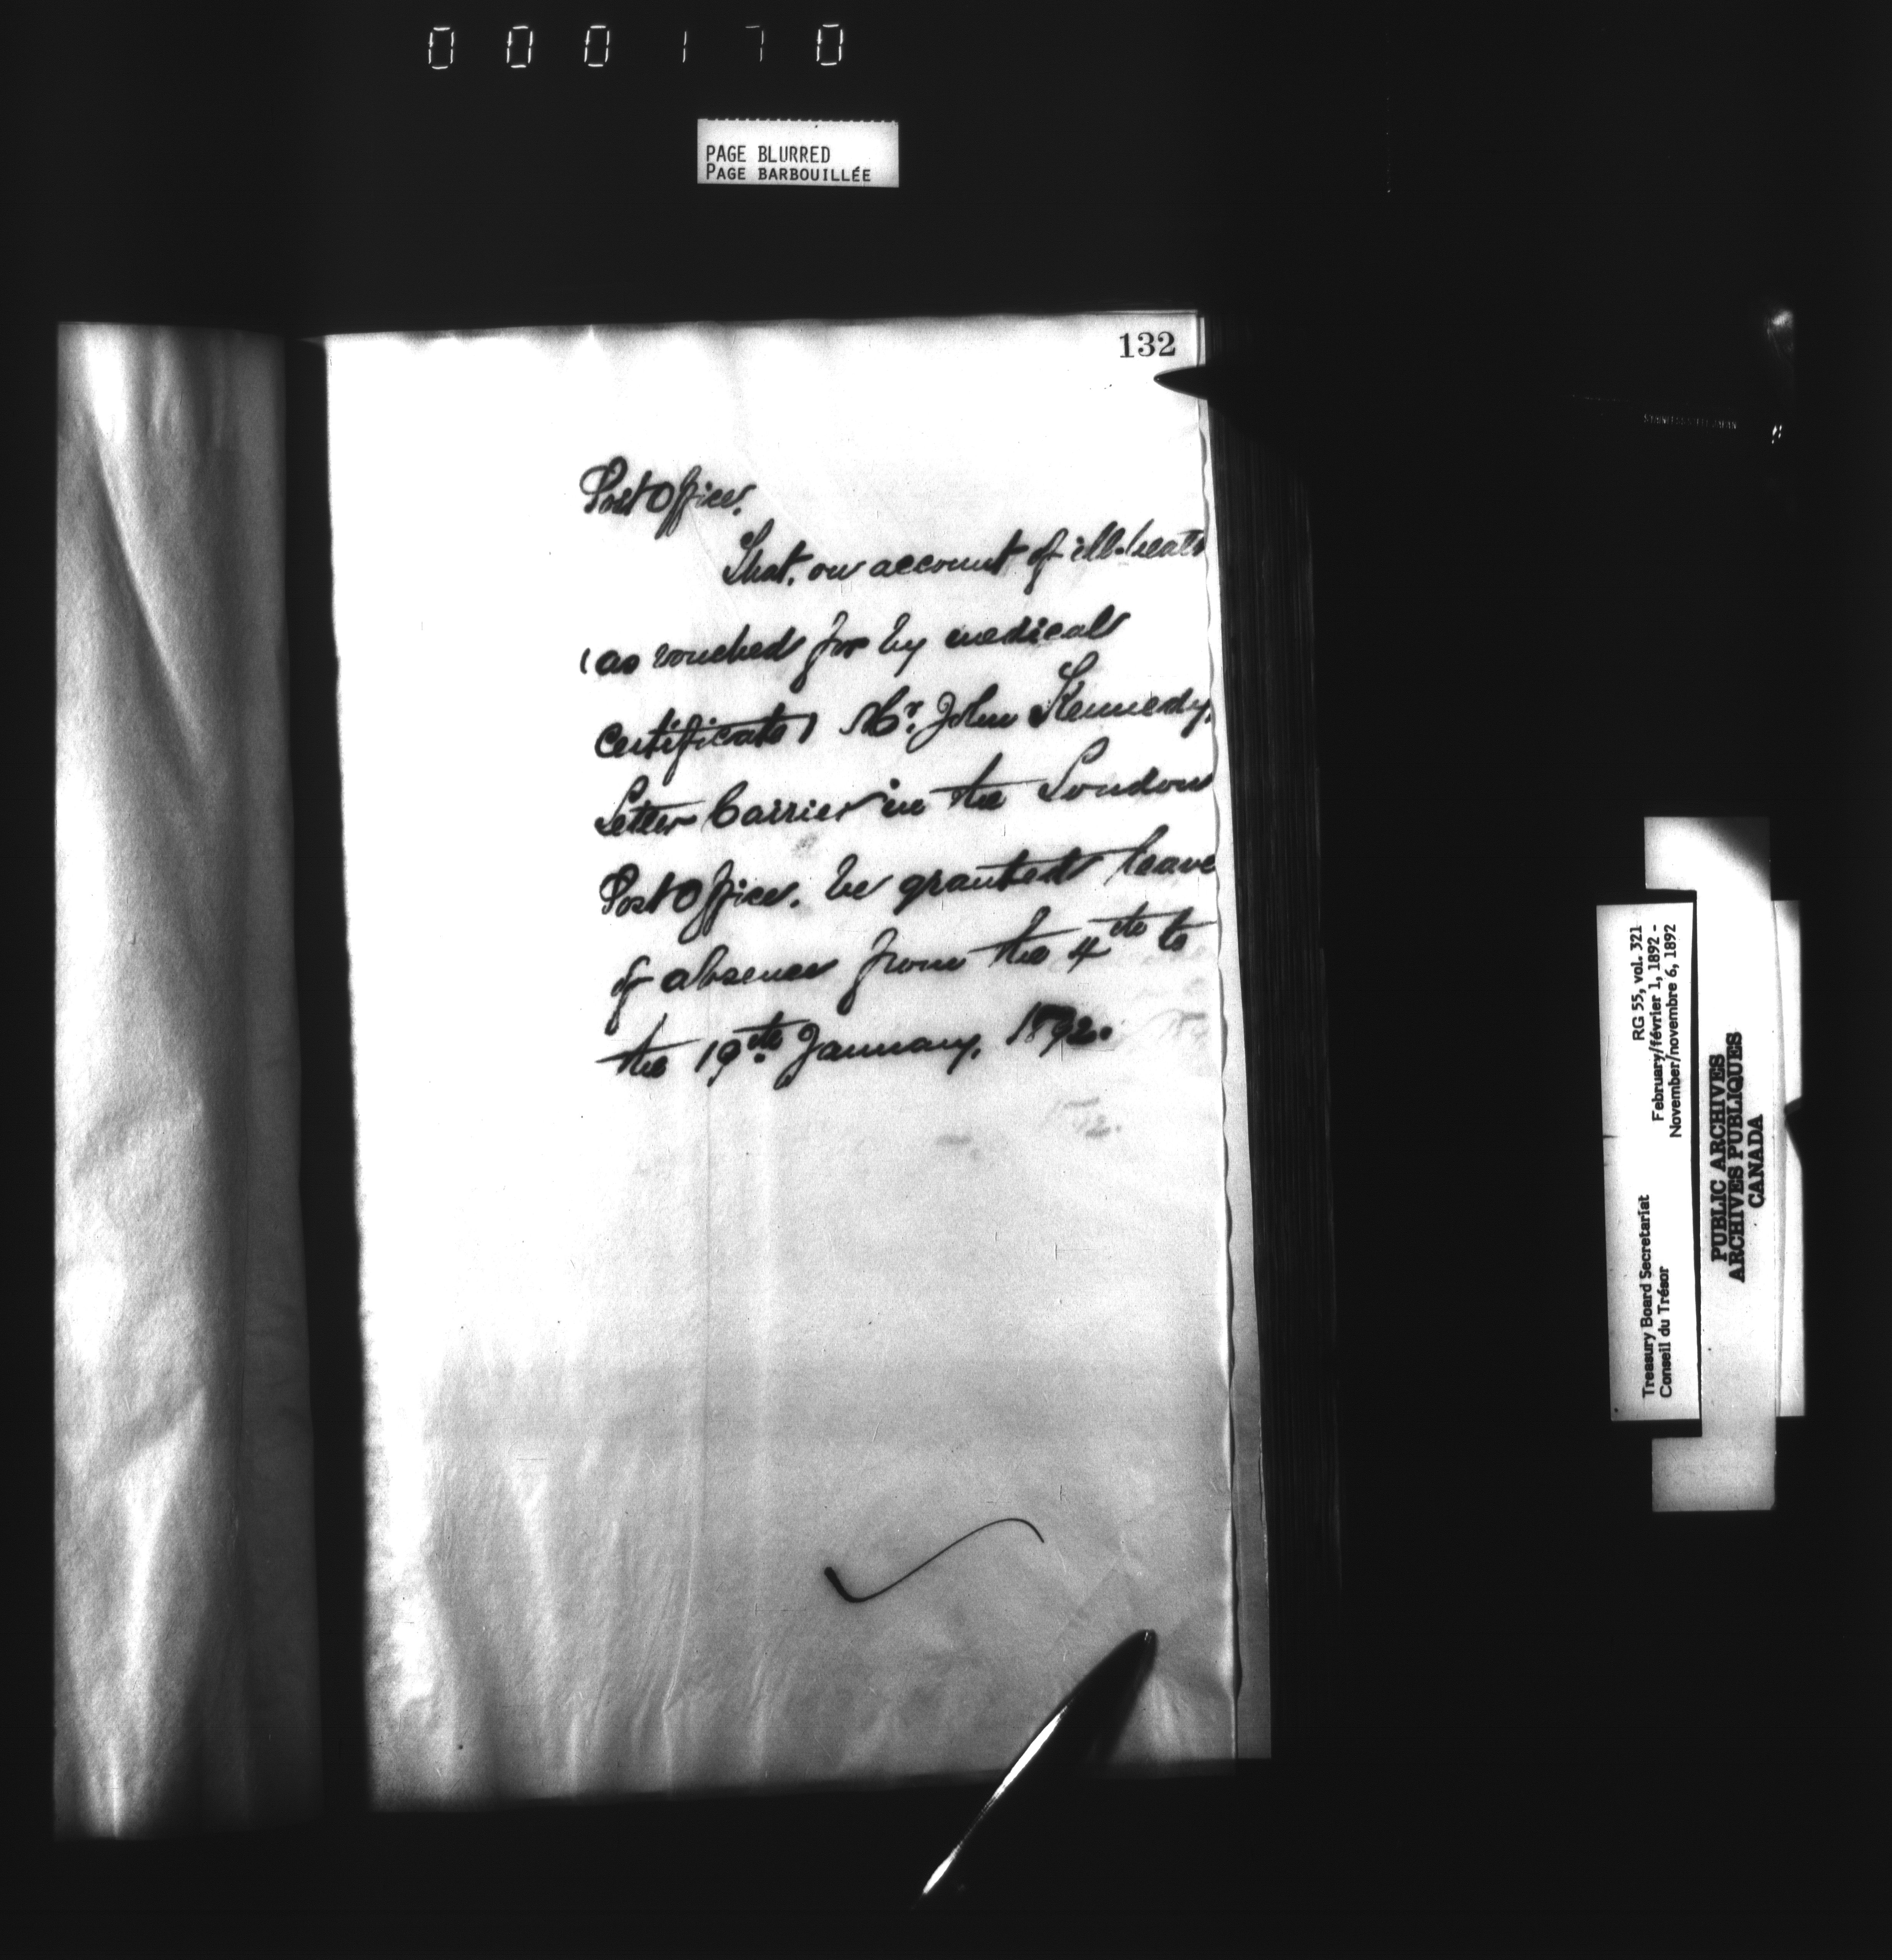 000170
PAGE BLURRED
PAGE BARBOUILLÉE
132
Post Office.
That, on account of ill-health
(as vouched for by medical
certificate) Mr. John Kennedy,
Letter Carrier in the London
Post Office, be granted leave
of absence from the 4th to
the 19th January, 1892.
RG 55, vol. 321
February/février 1, 1892 -
November/novembre 6, 1892
Treasury Board Secretariat
Conseil du Trésor
PUBLIC ARCHIVES
ARCHIVES PUBLIQUES
CANADA